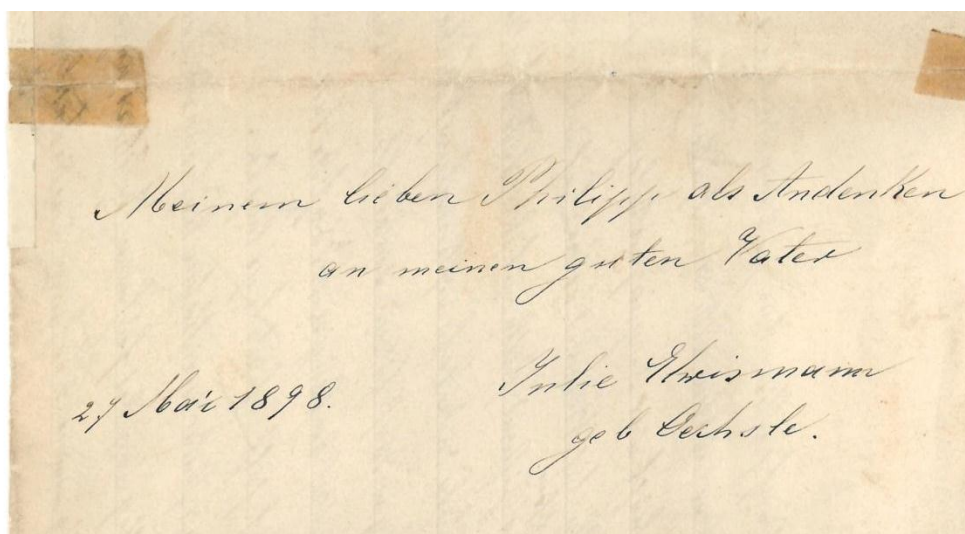 Meinem lieben Philipp als Andenken
an meinen guten Vater
27 Mai 1898.
Julie
geb Oechsle.